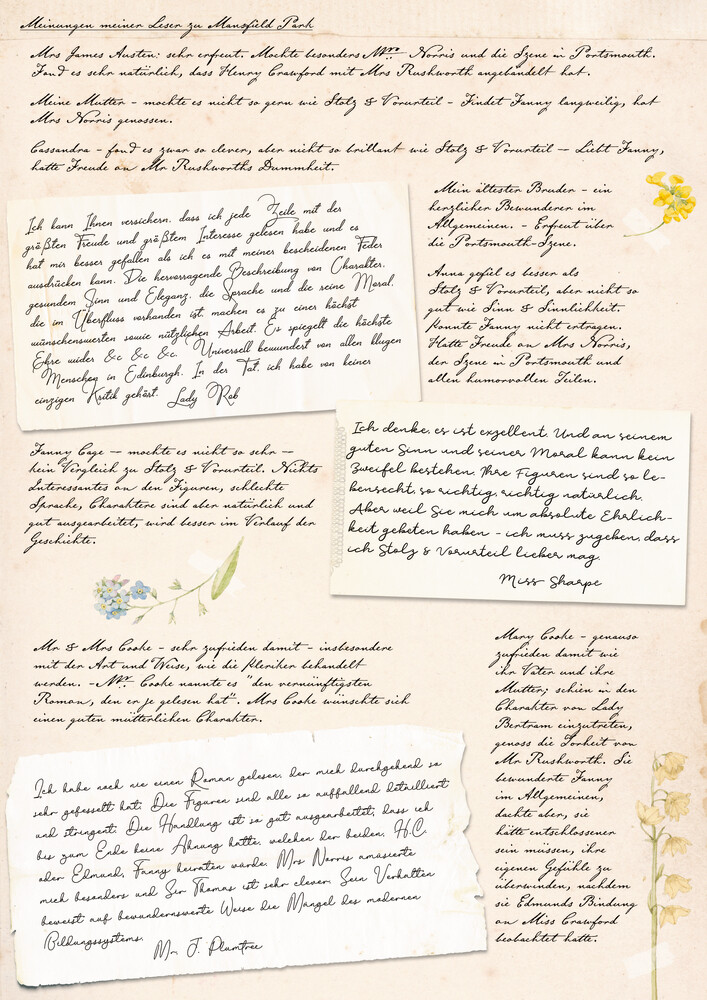 Meinungen meiner Leser zu Mansfield Park
Mrs James Austen: sehr erfreut. Mochte besonders Mrs. Norris und die Szene in Portsmouth.
Fand es sehr natürlich, dass Henry Crawford mit Mrs Rushworth angebandelt hat.
Meine Mutter – mochte es nicht so gern wie Stolz & Vorurteil – Findet Fanny langweilig, hat
Mrs Norris genossen.
Cassandra – fand es zwar so clever, aber nicht so brillant wie Stolz & Vorurteil — Liebt Fanny,
hatte Freude an Mr Rushworths Dummheit.
Ich kann Ihnen versichern, dass ich jede Zeile mit der
größten Freude und größtem Interesse gelesen habe und es
hat mir besser gefallen als ich es mit meiner bescheidenen Feder
ausdrücken kann. Die hervorragende Beschreibung von Charakter,
gesundem Sinn und Eleganz, die Sprache und die reine Moral,
die im Überfluss vorhanden ist, machen es zu einer höchst
wünschenswerten sowie nützlichen Arbeit. Es spiegelt die höchste
Ehre wider &c &c &c. Universell bewundert von allen klugen
Menschen in Edinburgh. In der Tat, ich habe von keiner
einzigen Kritik gehört. Lady Rob
Mein ältester Bruder – ein
herzlicher Bewunderer im
Allgemeinen. – Erfreut über
die Portsmouth-Szene.
Anna gefiel es besser als
Stolz & Vorurteil, aber nicht so
gut wie Sinn & Sinnlichkeit.
Konnte Fanny nicht ertragen.
Hatte Freude an Mrs Norris,
der Szene in Portsmouth und
allen humorvollen Teilen.
Ich denke, es ist exzellent. Und an seinem
guten Sinn und seiner Moral kann kein
Zweifel bestehen. Ihre Figuren sind so le-
bensecht, so richtig, richtig natürlich.
Aber weil Sie mich um absolute Ehrlich-
keit gebeten haben – ich muss zugeben, dass
ich Stolz & Vorurteil lieber mag.
Miss Sharpe
Fanny Cage — mochte es nicht so sehr —
kein Vergleich zu Stolz & Vorurteil. Nichts
Interessantes an den Figuren, schlechte
Sprache, Charaktere sind aber natürlich und
gut ausgearbeitet, wird besser im Verlauf der
Geschichte.
Mr & Mrs Cooke – sehr zufrieden damit – insbesondere
mit der Art und Weise, wie die Kleriker behandelt
werden. –Mr. Cooke nannte es "den vernünftigsten
Roman, den er je gelesen hat". Mrs Cooke wünschte sich
einen guten mütterlichen Charakter.
Mary Cooke – genauso
zufrieden damit wie
ihr Vater und ihre
Mutter; schien in den
Charakter von Lady
Bertram einzutreten,
genoss die Torheit von
Mr Rushworth. Sie
bewunderte Fanny
im Allgemeinen,
dachte aber, sie
hätte entschlossener
sein müssen, ihre
eigenen Gefühle zu
überwinden, nachdem
sie Edmunds Bindung
an Miss Crawford
beobachtet hatte.
Ich habe noch nie einen Roman gelesen, der mich durchgehend so
sehr gefesselt hat. Die Figuren sind alle so auffallend detailliert
und stringent. Die Handlung ist so gut ausgearbeitet, dass ich
bis zum Ende keine Ahnung hatte, welchen der beiden, H.C.
oder Edmund, Fanny heiraten würde. Mrs Norris amüsierte
mich besonders und Sir Thomas ist sehr clever. Sein Verhalten
beweist auf bewundernswerte Weise die Mängel des modernen
Bildungssystems.
Mr. J. Plumtree